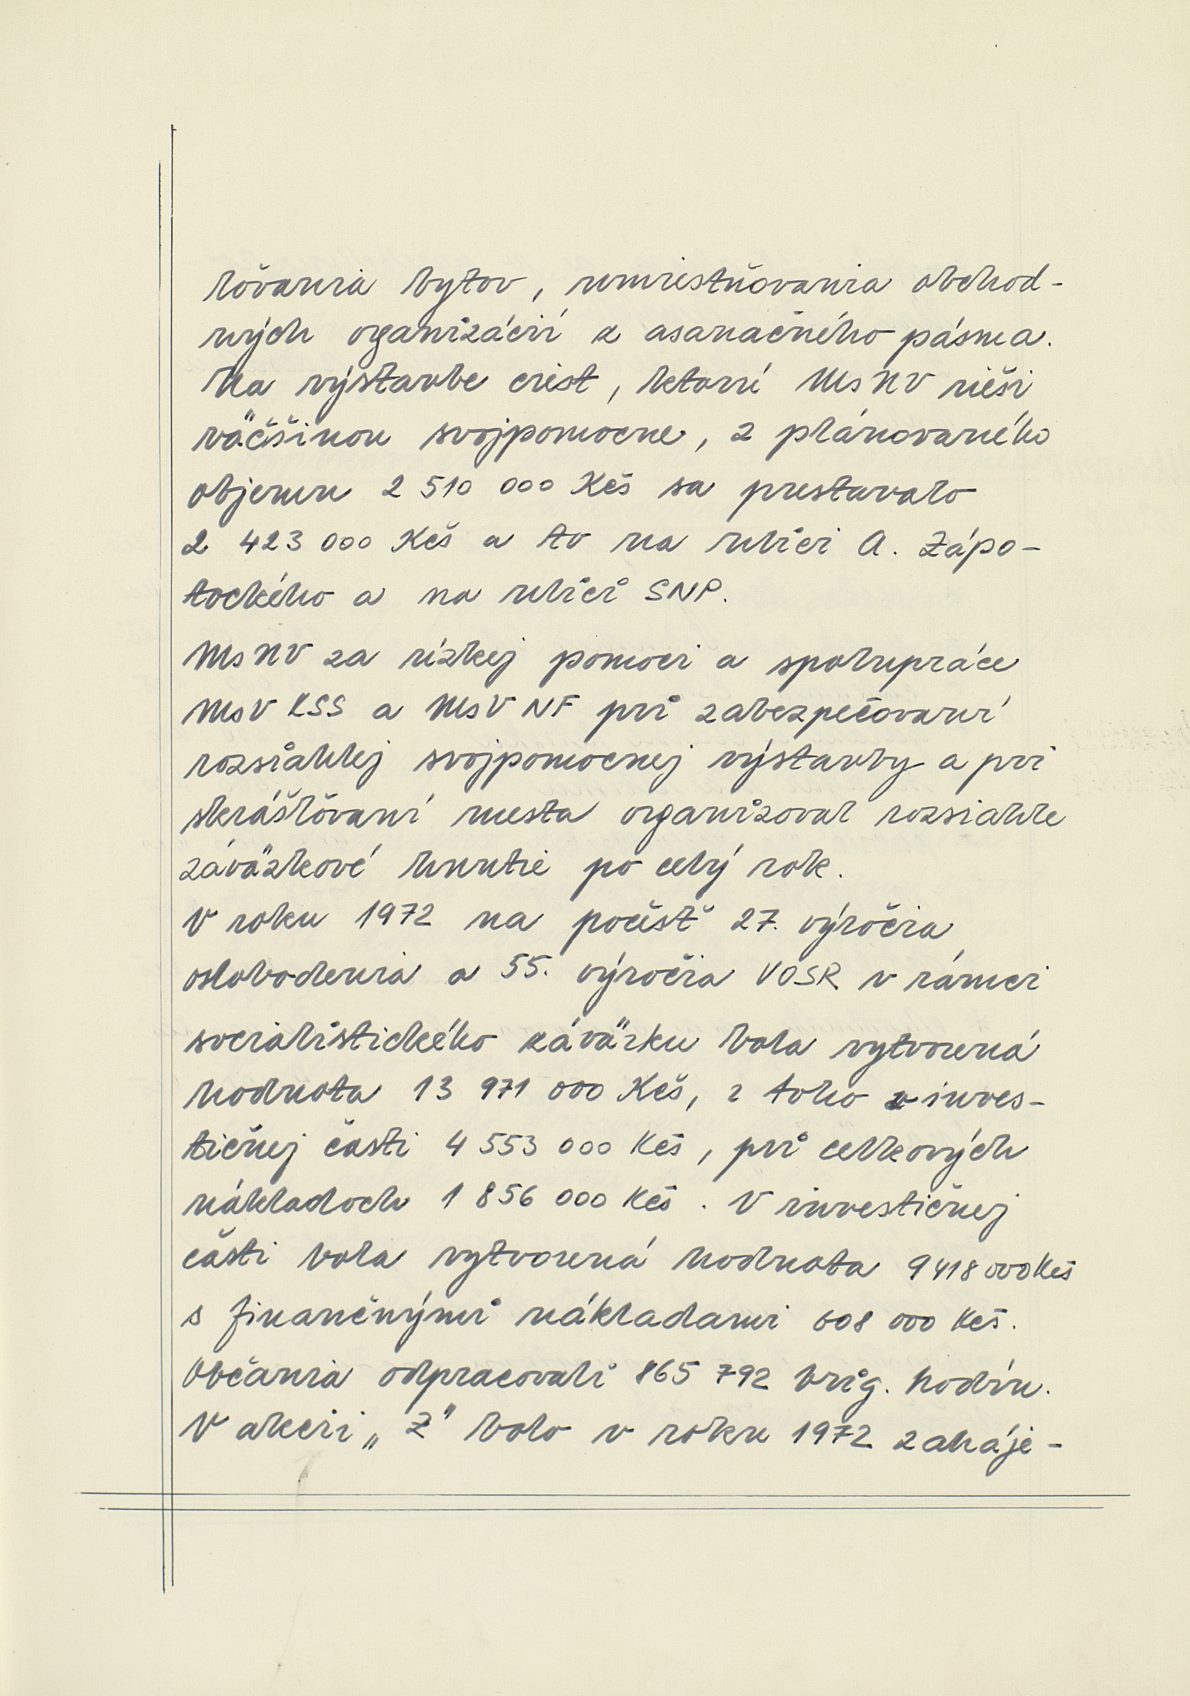 ľovania bytov, umiestňovania obchod-
ných organizácií z asanačného pásma.
Na výstavbe ciest, ktorú MsNV rieši
väčšinou svojpomocne, z plánovaného
objemu 2 510 000 Kčs sa prestavalo
2 423 000 Kčs a to na ulici A. Zápo-
tockého a na ulici SNP.
MsNV za úzkej pomoci a spolupráce
MsV KSS a MsV NF pri zabezpečovaní
rozsiahlej svojpomocnej výstavby a pri
skrášľovaní mesta organizoval rozsiahle
záväzkové hnutie po celý rok.
V roku 1972 na počesť 27. výročia
oslobodenia a 55. výročia VOSR v rámci
socialistického záväzku bola vytvorená
hodnota 13 971 000 Kčs, z toho v inves-
tičnej časti 4 553 000 Kčs, pri celkových
nákladoch 1 856 000 Kčs. V investičnej
časti bola vytvorená hodnota 9 418 000 Kčs
s finančnými nákladami 608 000 Kčs.
Občania odpracovali 865 792 brig. hodín.
V akcii „Z" bolo v roku 1972 zaháje-